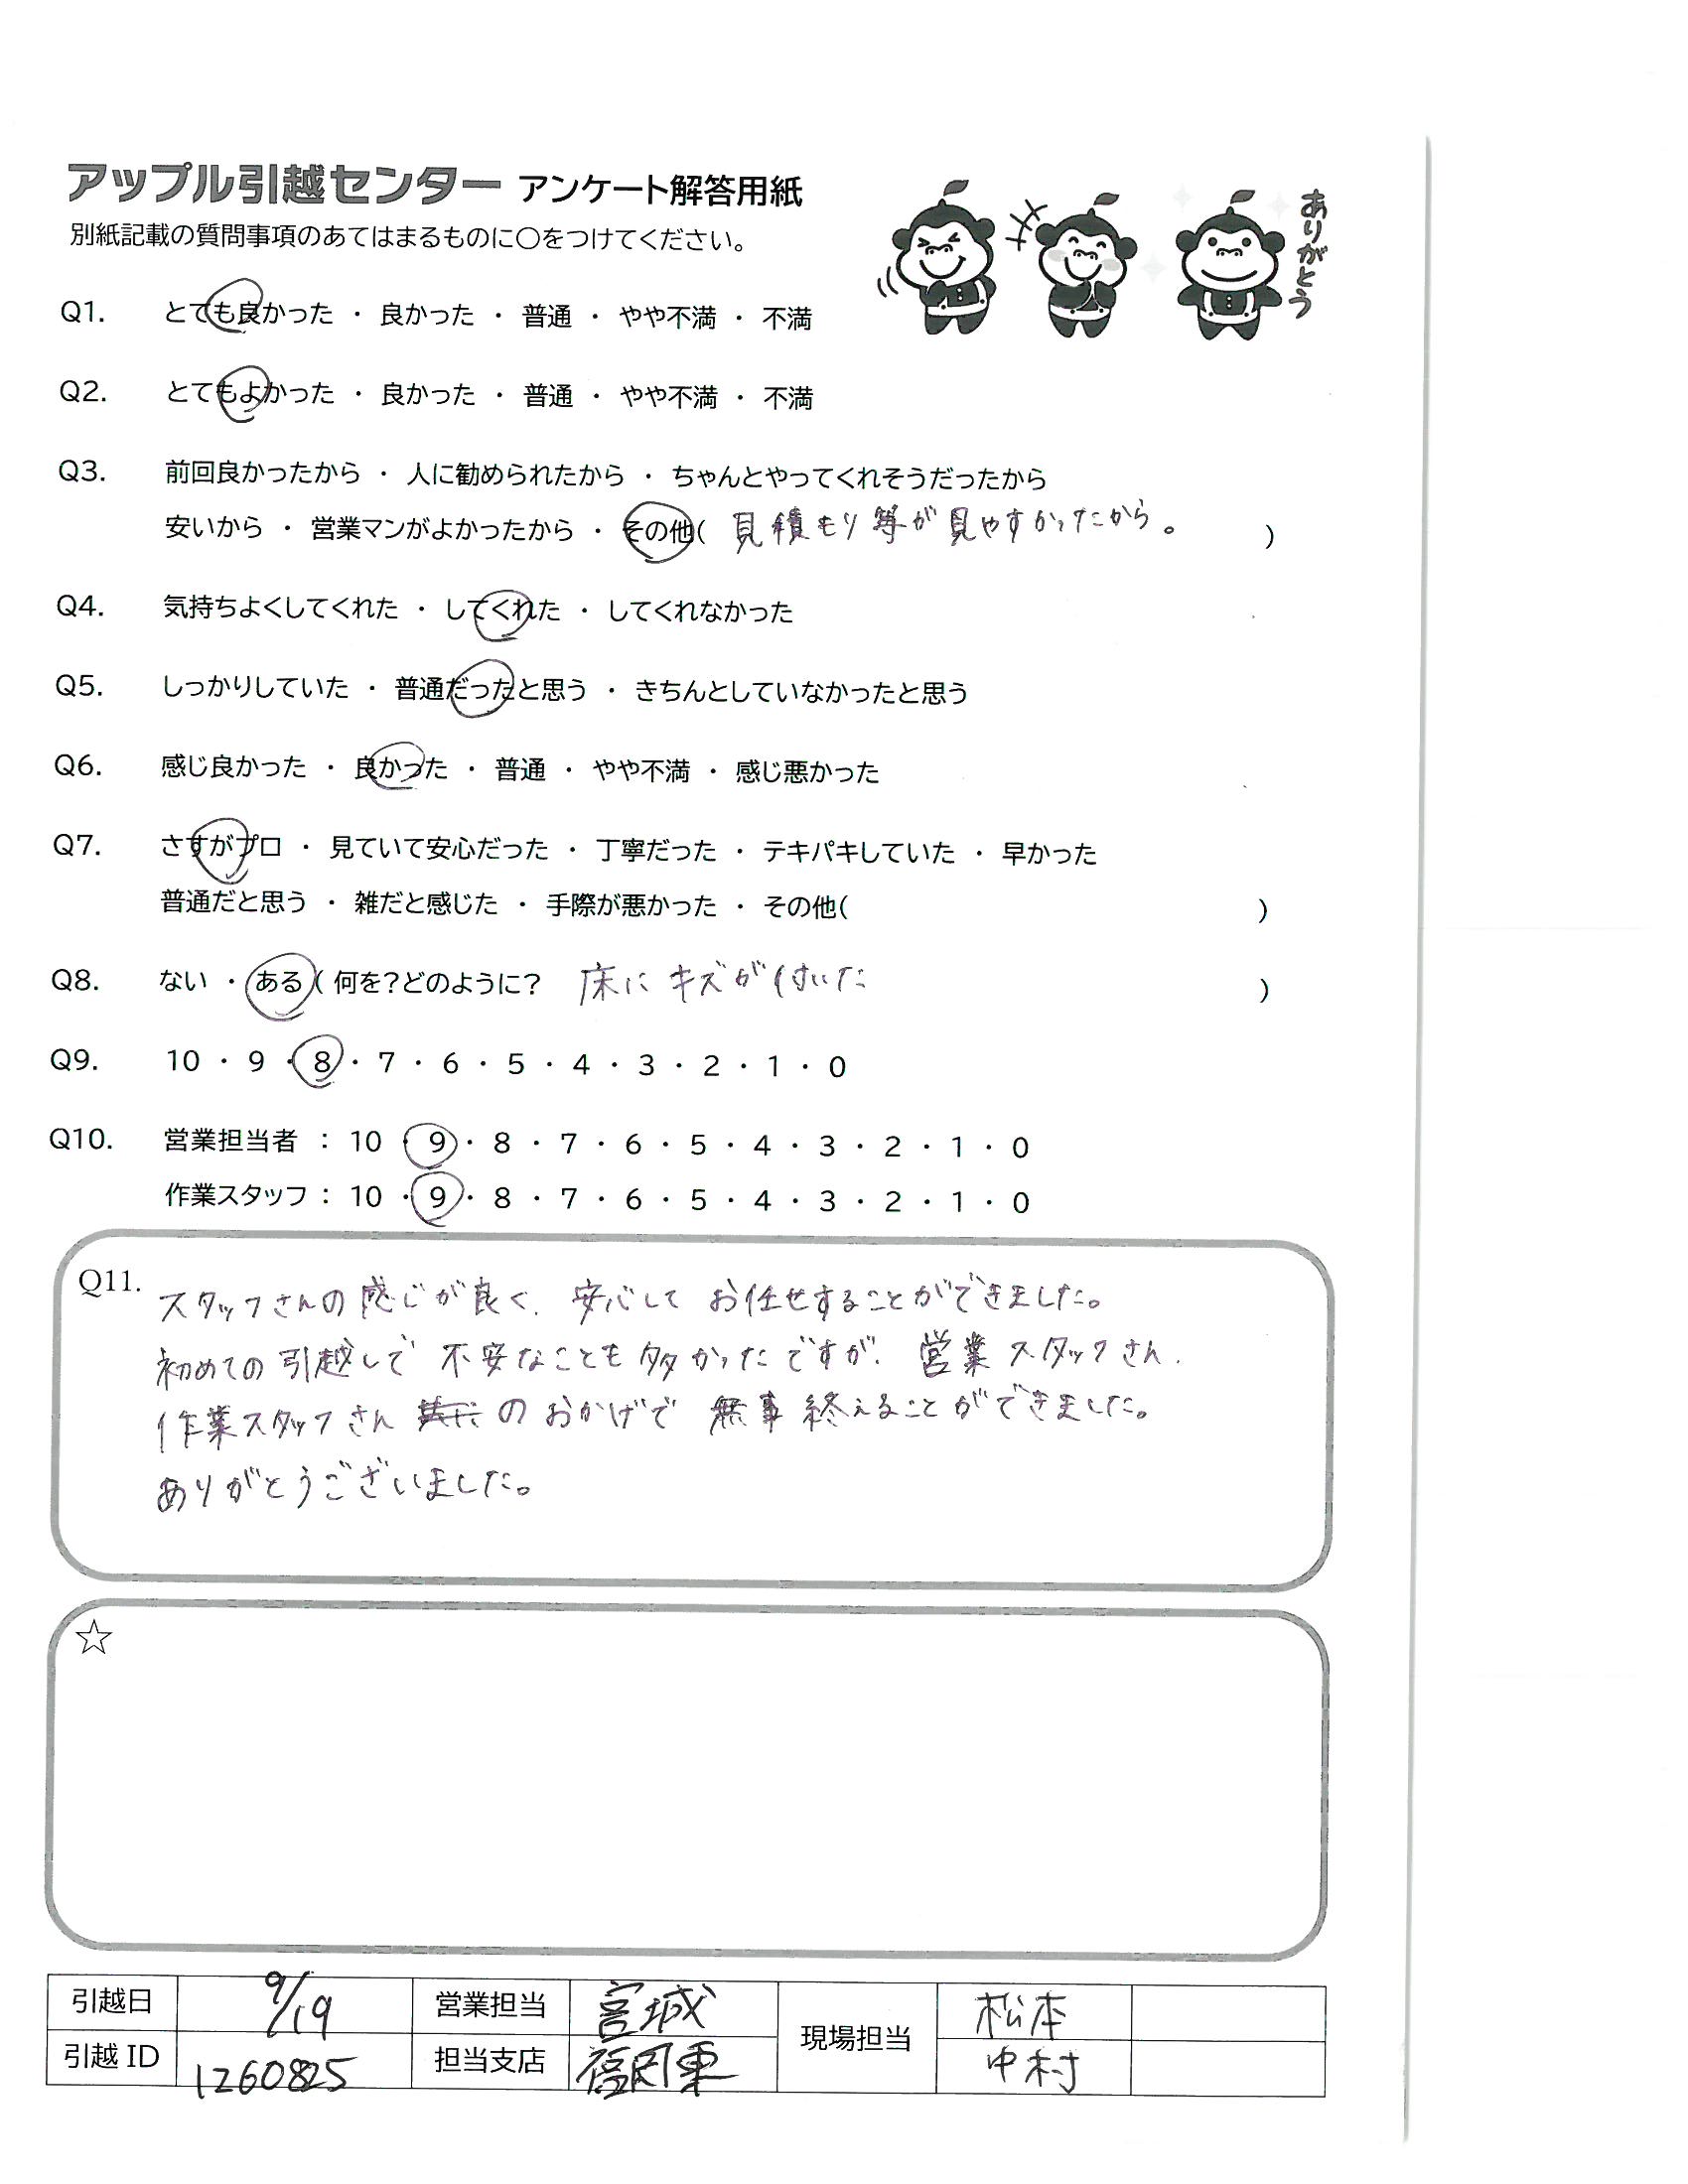 アップル引越センター アンケート解答用紙
別紙記載の質問事項のあてはまるものに〇をつけてください。
ありがとう
Q1. とても良かった ・ 良かった ・ 普通 ・ やや不満 ・ 不満
Q2. とてもよかった ・ 良かった ・ 普通 ・ やや不満 ・ 不満
Q3. 前回良かったから ・ 人に勧められたから ・ ちゃんとやってくれそうだったから
安いから ・ 営業マンがよかったから ・ その他( 見積もり等が見やすかったから。 )
Q4. 気持ちよくしてくれた ・ してくれた ・ してくれなかった
Q5. しっかりしていた ・ 普通だったと思う ・ きちんとしていなかったと思う
Q6. 感じ良かった ・ 良かった ・ 普通 ・ やや不満 ・ 感じ悪かった
Q7. さすがプロ ・ 見ていて安心だった ・ 丁寧だった ・ テキパキしていた ・ 早かった
普通だと思う ・ 雑だと感じた ・ 手際が悪かった ・ その他( )
Q8. ない ・ ある ( 何を?どのように? 床にキズが付いた )
Q9. 10 ・ 9 ・ 8 ・ 7 ・ 6 ・ 5 ・ 4 ・ 3 ・ 2 ・ 1 ・ 0
Q10. 営業担当者 : 10 ・ 9 ・ 8 ・ 7 ・ 6 ・ 5 ・ 4 ・ 3 ・ 2 ・ 1 ・ 0
作業スタッフ : 10 ・ 9 ・ 8 ・ 7 ・ 6 ・ 5 ・ 4 ・ 3 ・ 2 ・ 1 ・ 0
Q11. スタッフさんの感じが良く、安心してお任せすることができました。
初めての引越しで不安なことも多かったですが、営業スタッフさん、
作業スタッフさんのおかげで無事終えることができました。
ありがとうございました。
☆
引越日 9/19 営業担当 宮城 現場担当 松本
引越ID 1260825 担当支店 福岡東 中村